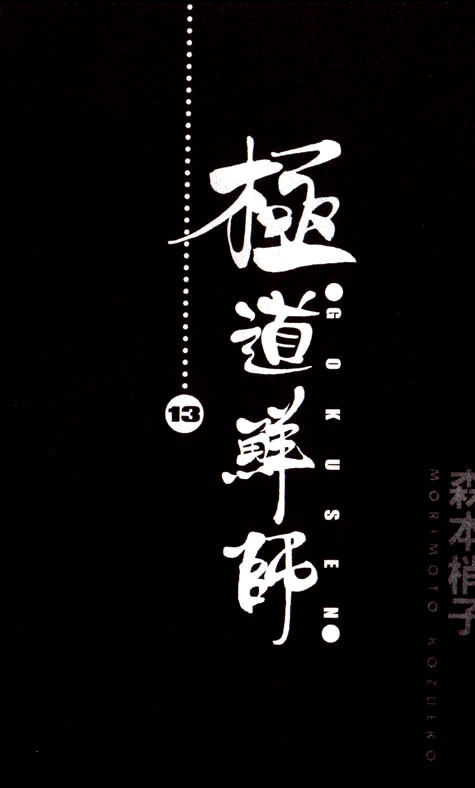 極道鮮師
GOKUSEN
13
森本梢子
MORIMOTO KOZUEKO